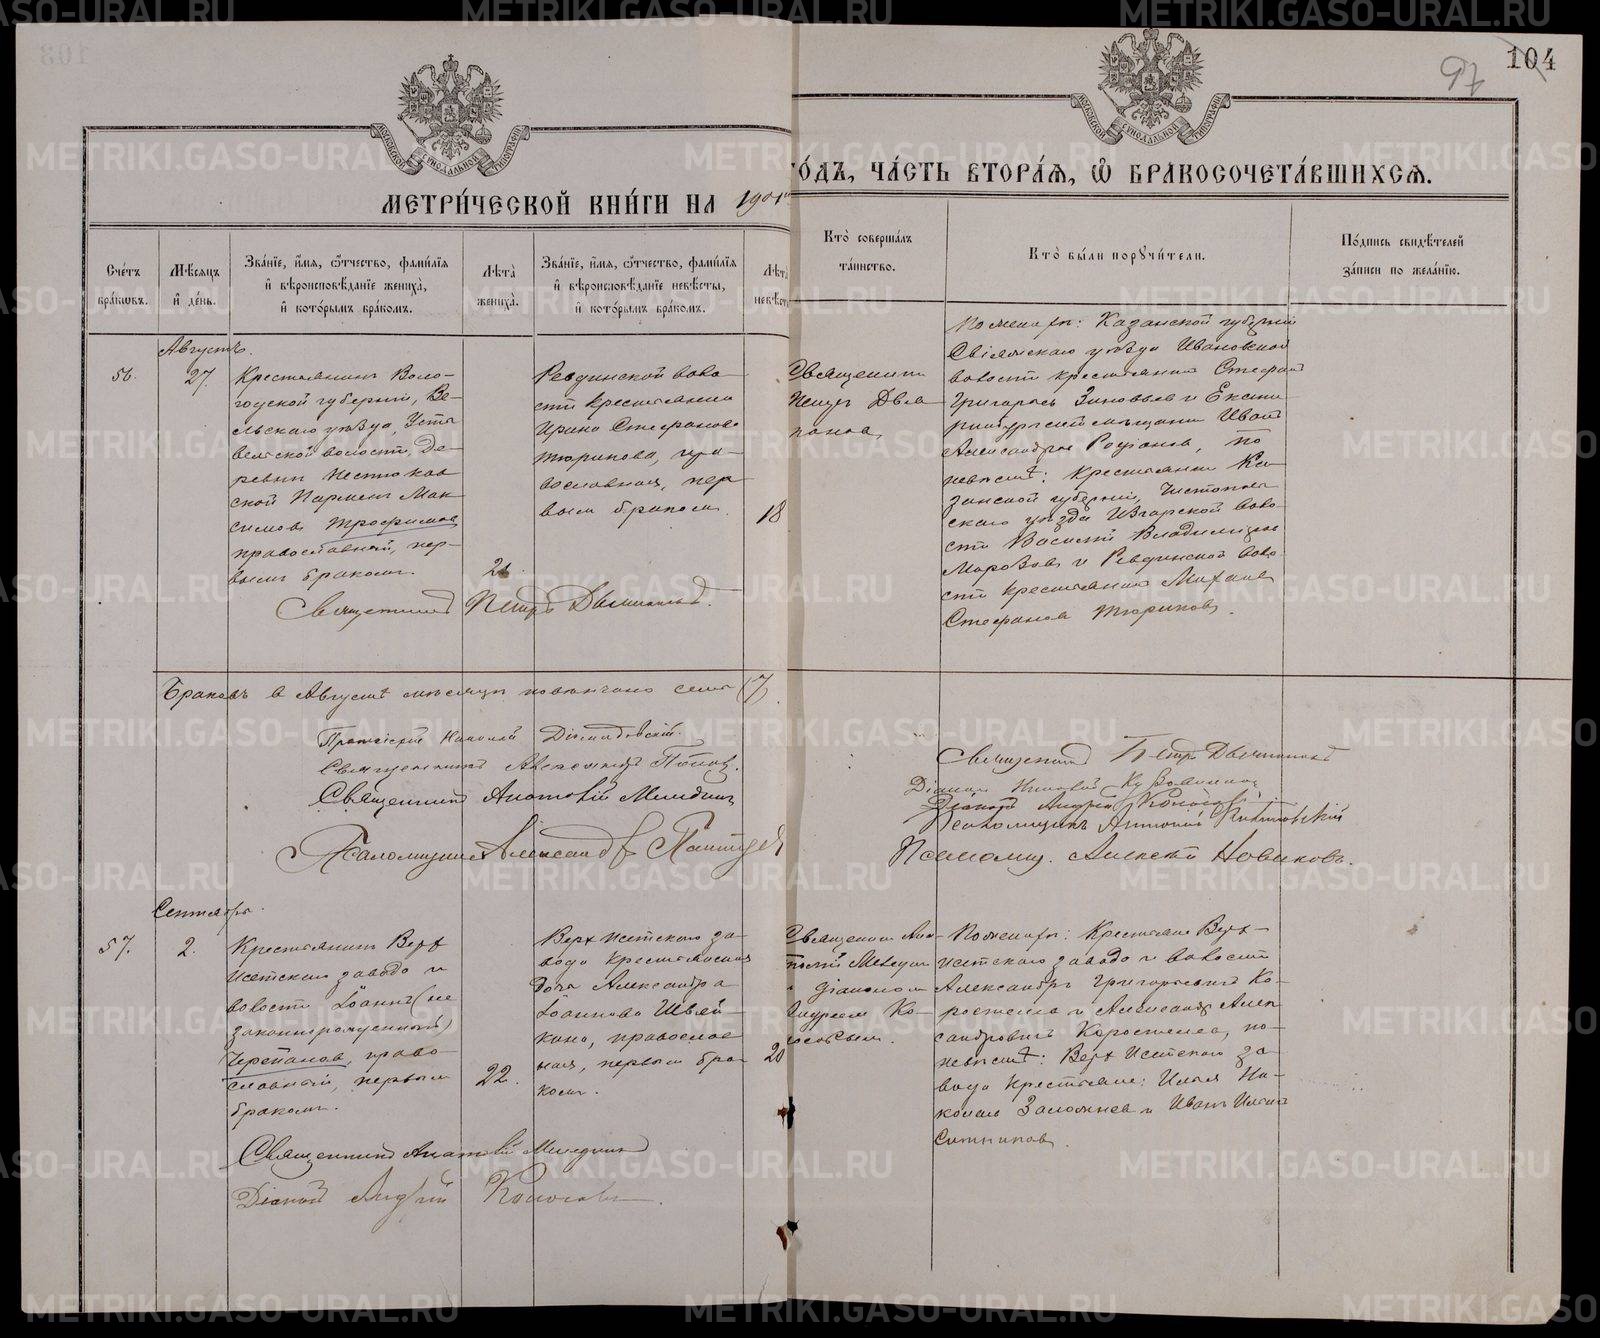 104
97
МОСКОВСКОЙ СѴНОДАЛЬНОЙ ТИПОГРАФІИ
МОСКОВСКОЙ СѴНОДАЛЬНОЙ ТИПОГРАФІИ
МЕТРИ́ЧЕСКОЙ КНИ́ГИ НА 1901й
ГО́ДЪ, ЧА́СТЬ ВТОРА́Я, Ѿ БРАКОСОЧЕТА́ВШИХСЯ.
Сче́тъ бра́кѡвъ.
Мѣ́сяцъ и҆ де́нь.
Зва́нїе, и҆́мя, ѻ҆́тчество, фами́лїя
и҆ вѣроисповѣ́данїе жениха̀,
и҆ кото́рымъ бра́комъ.
Лѣ́та жениха̀.
Зва́нїе, и҆́мя, ѻ҆́тчество, фами́лїя
и҆ вѣроисповѣ́данїе невѣ́сты,
и҆ кото́рымъ бра́комъ.
Лѣ́та невѣ́ст
Кто̀ соверша́лъ
та́инство.
Кто̀ бы́ли порꙋчи́тели.
По́дпись свидѣ́телей
за́писи по жела́нїю.
Августъ.
56.
27.
Крестьянинъ Воло-
годской губерніи, Ве-
льскаго уѣзда, Усть
вельской волости, де-
ревни
ской Парменъ Мак
симовъ Трофимовъ
православный, пер-
вымъ бракомъ.
21.
Ревдинской воло
сти крестьянка
Ирина Стефанова
Тюрикова, пра-
вославная, пер
вымъ бракомъ.
18
Священникъ
Петръ Двья
Поженихѣ: Казанской губерніи
Свіяжскаго уѣзда Ивановской
волости крестьянинъ Стефанъ
Григорьевъ Зиновьевъ и Екате
ринбургскій мѣщанинъ Иванъ
Александровъ по
невѣстѣ: крестьяне Ка
занской губерніи, Чистополь
скаго уѣзда воло
сти Василій Владиміровъ
Морозовъ и Ревдинской воло
сти крестьянинъ Михаилъ
Стефановъ Тюриковъ.
Священникъ Петръ
Браковъ в Августѣ мѣсяцѣ повѣнчано семь (7).
Протоіерей Николай Діомидовскій.
Священникъ Александръ Поповъ.
Священникъ Анатолій Меледин
Псаломщикъ Александръ
Священникъ Петръ
Діаконъ Николай
Діаконъ Андрей Колосовъ
Псаломщикъ Антоній
Псаломщ. Алексѣй Новиковъ.
Сентябрь.
57.
2.
Крестьянинъ Верх
Исетскаго завода и
волости Іоаннъ (не
законнорожденный)
Черепановъ, право
славный, первымъ
бракомъ.
22.
Верх Исетскаго за-
вода крестьянская
дочь Александра
Іоаннова Швей-
кина, православ
ная, первымъ бра
комъ.
20
Священникъ Ана-
толій Меледин
діакономъ
Андреемъ Ко-
лосовымъ.
Поженихѣ: Крестьяне Верх-
исетскаго завода и волости
Александръ Григорьевичъ Ко-
ростелевъ и Александръ Алек
сандровичъ Коростелевъ, по-
невѣстѣ: Верх Исетскаго за-
вода крестьяне: Илья Ни-
колаевъ Заложневъ и Иванъ
Ситниковъ.
Священникъ Анатолій Меледин
Діаконъ Андрей Колосовъ.